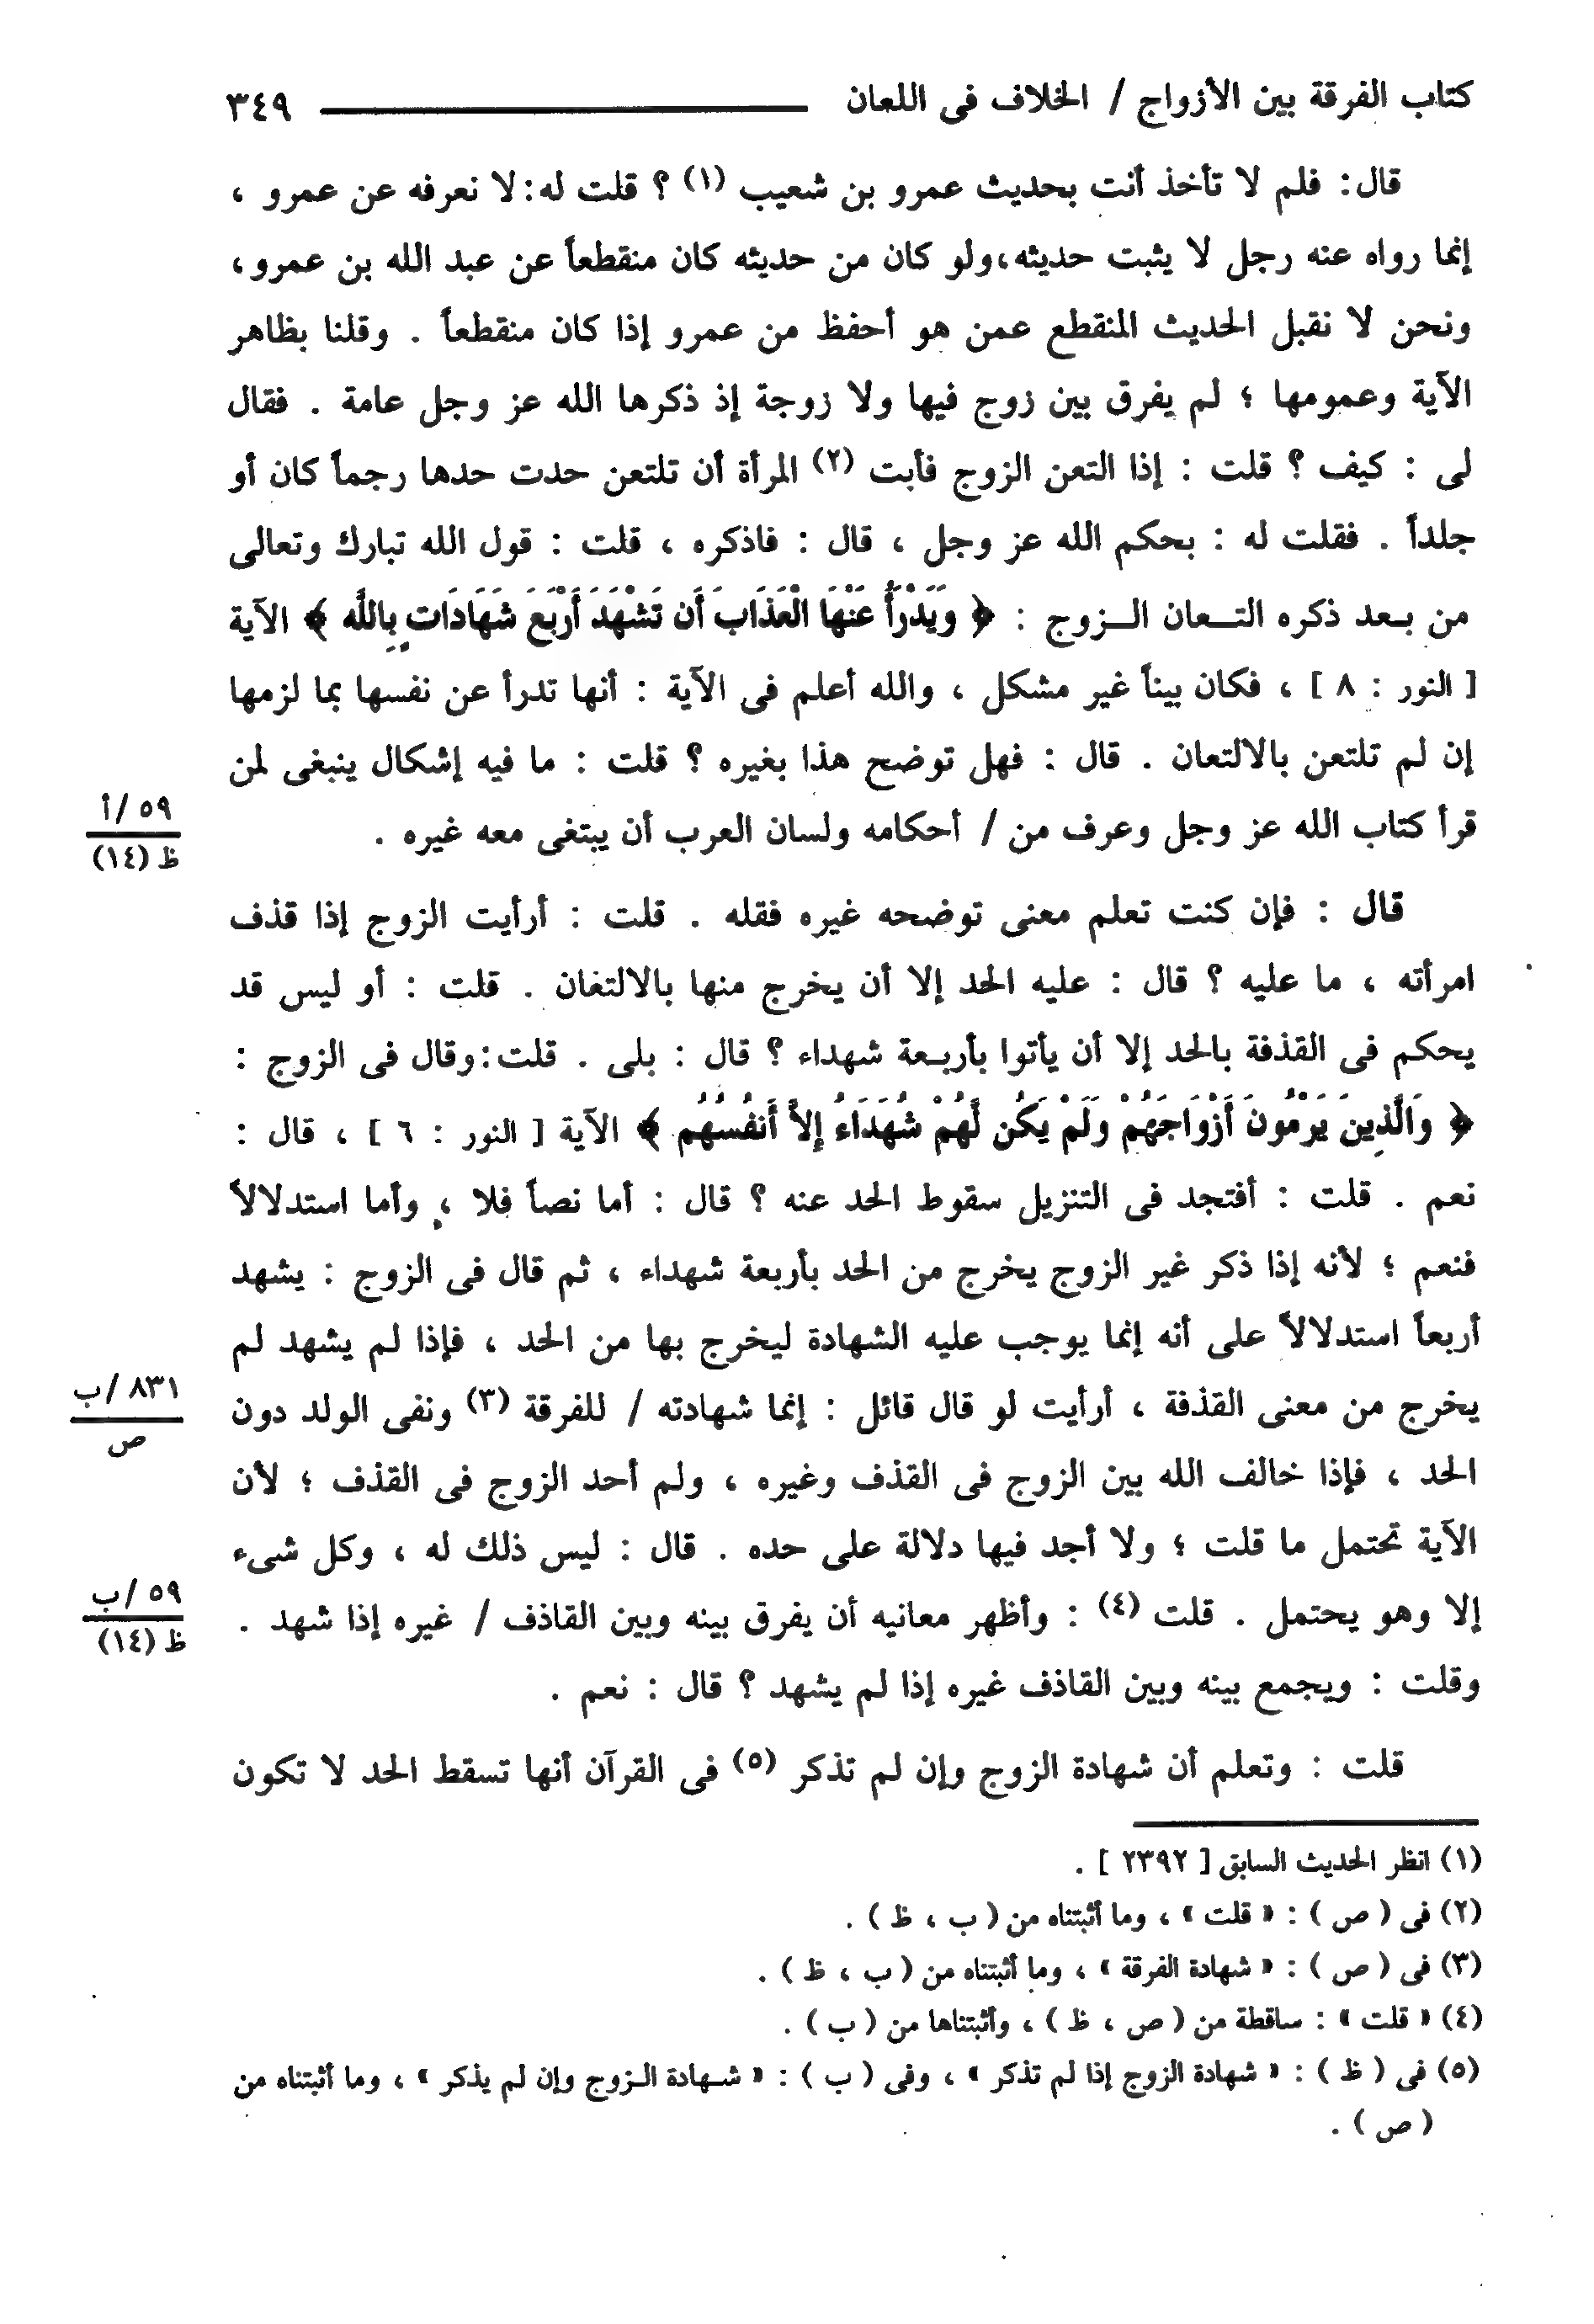 كتاب الفرقة بين الأزواج / الخلاف فى اللعان ٣٤٩
قال : فلم لا تأخذ أنت بحديث عمرو بن شعيب (١) ؟ قلت له : لا نعرفه عن عمرو ،
إنما رواه عنه رجل لا يثبت حديثه ، ولو كان من حديثه كان منقطعاً عن عبد الله بن عمرو ،
ونحن لا نقبل الحديث المنقطع عمن هو أحفظ من عمرو إذا كان منقطعاً . وقلنا بظاهر
الآية وعمومها ؛ لم يفرق بين زوج فيها ولا زوجة إذ ذكرها الله عز وجل عامة . فقال
لى : كيف ؟ قلت : إذا التعن الزوج فأبت (٢) المرأة أن تلتعن حدت حدها رجماً كان أو
جلداً . فقلت له : بحكم الله عز وجل ، قال : فاذكره ، قلت : قول الله تبارك وتعالى
من بعد ذكره التعان الزوج : ﴿ وَيَدْرَأُ عَنْهَا الْعَذَابَ أَن تَشْهَدَ أَرْبَعَ شَهَادَاتٍ بِاللَّهِ ﴾ الآية
[ النور : ٨ ] ، فكان بيناً غير مشكل ، والله أعلم فى الآية : أنها تدرأ عن نفسها بما لزمها
إن لم تلتعن بالالتعان . قال : فهل توضح هذا بغيره ؟ قلت : ما فيه إشكال ينبغى لمن
٥٩ /أ
قرأ كتاب الله عز وجل وعرف من / أحكامه ولسان العرب أن يبتغى معه غيره .
ظ (١٤)
قال : فإن كنت تعلم معنى توضحه غيره فقله . قلت : أرأيت الزوج إذا قذف
امرأته ، ما عليه ؟ قال : عليه الحد إلا أن يخرج منها بالالتعان . قلت : أو ليس قد
يحكم فى القذفة بالحد إلا أن يأتوا بأربعة شهداء ؟ قال : بلى . قلت : وقال فى الزوج :
﴿ وَالَّذِينَ يَرْمُونَ أَزْوَاجَهُمْ وَلَمْ يَكُن لَّهُمْ شُهَدَاءُ إِلاَّ أَنفُسُهُم ﴾ الآية [ النور : ٦ ] ، قال :
نعم . قلت : أفتجد فى التنزيل سقوط الحد عنه ؟ قال : أما نصاً فلا ، وأما استدلالاً
فنعم ؛ لأنه إذا ذكر غير الزوج يخرج من الحد بأربعة شهداء ، ثم قال فى الزوج : يشهد
أربعاً استدلالاً على أنه إنما يوجب عليه الشهادة ليخرج بها من الحد ، فإذا لم يشهد لم
٨٣١ /ب
يخرج من معنى القذفة ، أرأيت لو قال قائل : إنما شهادته / للفرقة (٣) ونفى الولد دون
ص
الحد ، فإذا خالف الله بين الزوج فى القذف وغيره ، ولم أحد الزوج فى القذف ؛ لأن
الآية تحتمل ما قلت ؛ ولا أجد فيها دلالة على حده . قال : ليس ذلك له ، وكل شىء
٥٩ /ب
إلا وهو يحتمل . قلت (٤) : وأظهر معانيه أن يفرق بينه وبين القاذف / غيره إذا شهد .
ظ (١٤)
وقلت : ويجمع بينه وبين القاذف غيره إذا لم يشهد ؟ قال : نعم .
قلت : وتعلم أن شهادة الزوج وإن لم تذكر (٥) فى القرآن أنها تسقط الحد لا تكون
(١) انظر الحديث السابق [ ٢٣٩٢ ] .
(٢) فى ( ص ) : « قلت » ، وما أثبتناه من ( ب ، ظ ) .
(٣) فى ( ص ) : « شهادة الفرقة » ، وما أثبتناه من ( ب ، ظ ) .
(٤) « قلت » : ساقطة من ( ص ، ظ ) ، وأثبتناها من ( ب ) .
(٥) فى ( ظ ) : « شهادة الزوج إذا لم تذكر » ، وفى ( ب ) : « شهادة الزوج وإن لم يذكر » ، وما أثبتناه من
( ص ) .